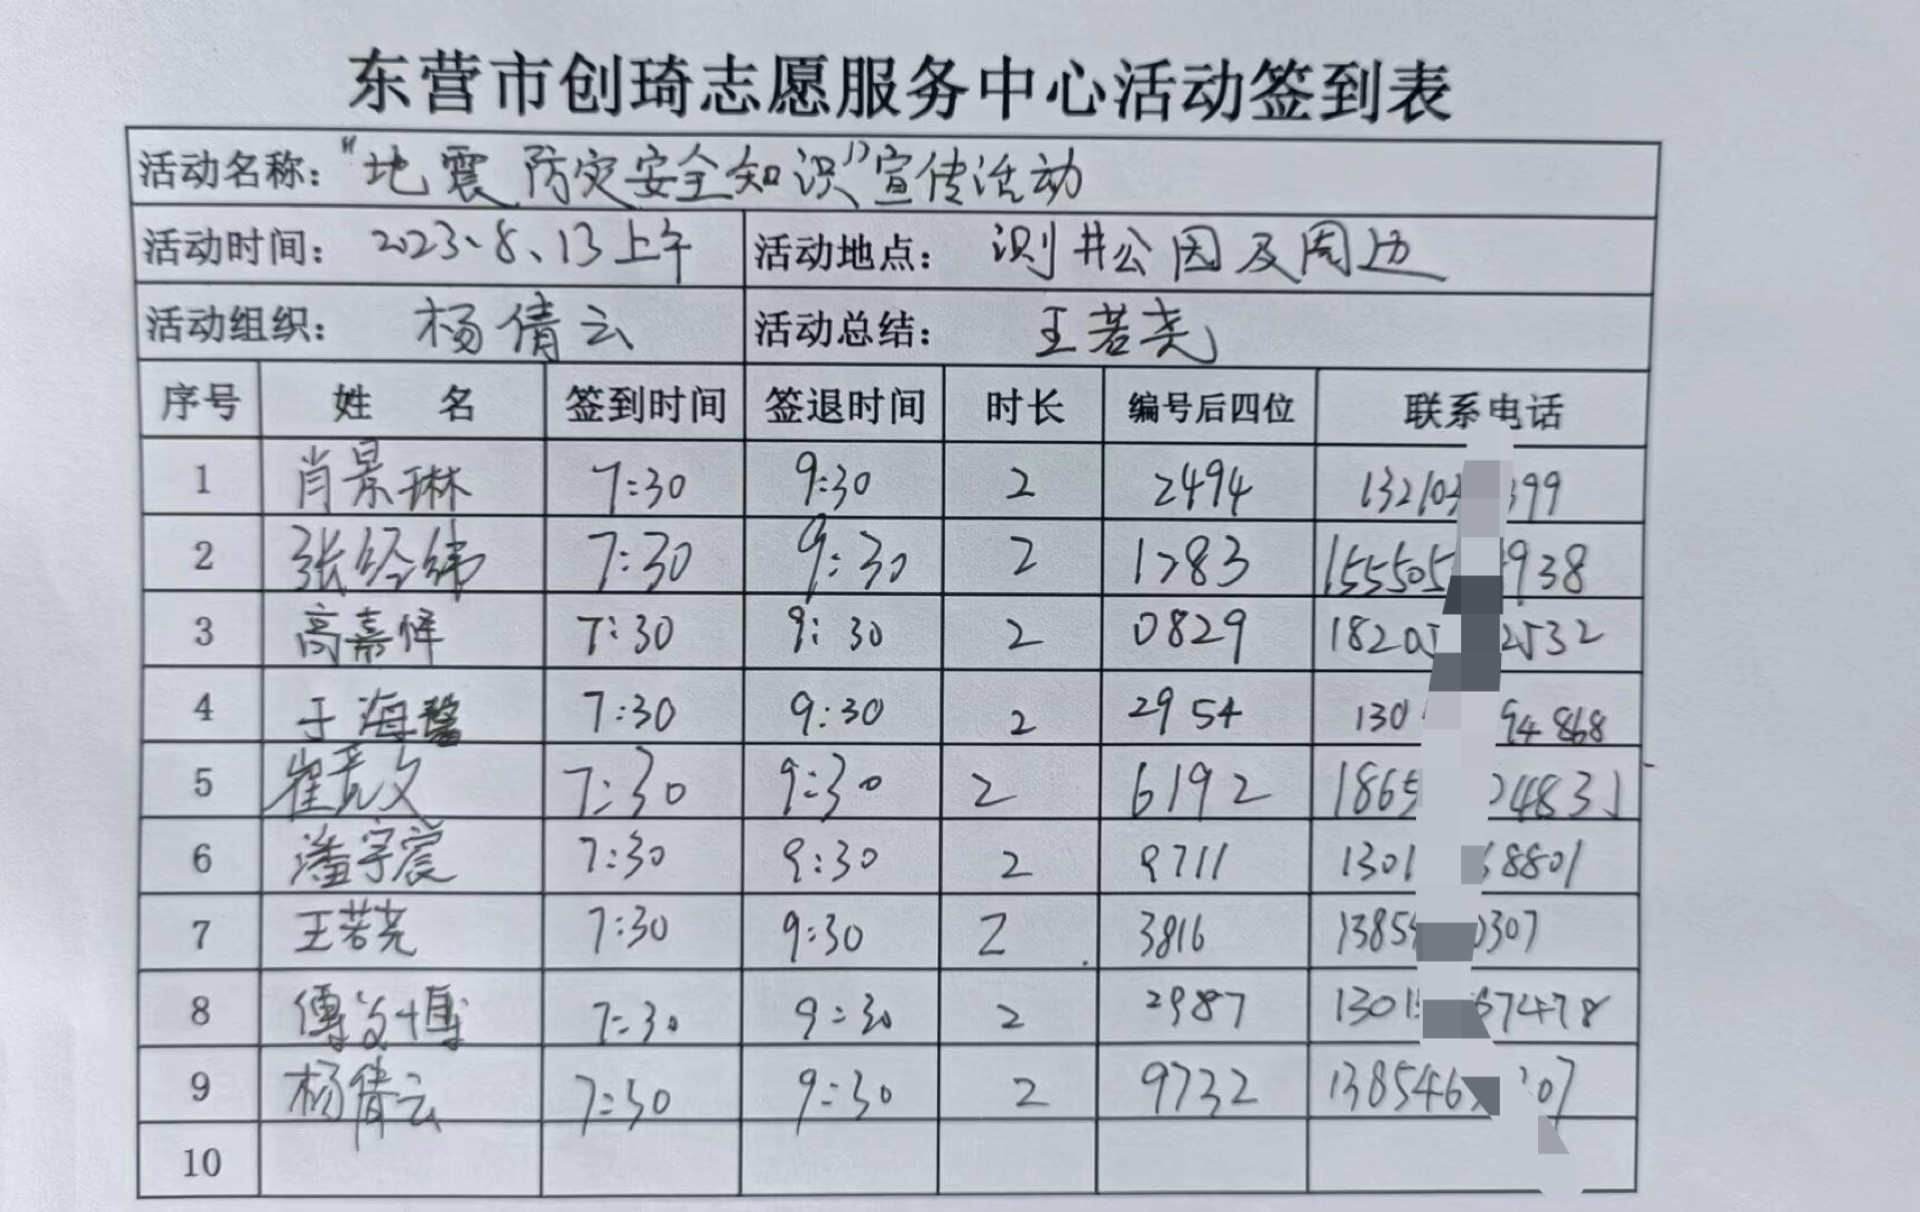 东营市创琦志愿服务中心活动签到表
活动名称：“地震防灾安全知识”宣传活动
活动时间：2023、8、13上午 活动地点：测井公园及周边
活动组织：杨倩云 活动总结：王若尧
序号 姓名 签到时间 签退时间 时长 编号后四位 联系电话
1 肖景琳 7:30 9:30 2 2494 13210 399
2 张经纬 7:30 9:30 2 1283 155505 938
3 高嘉怿 7:30 9:30 2 0829 18205 2532
4 于海馨 7:30 9:30 2 2954 130 94868
5 崔 文 7:30 9:30 2 6192 1865 24831
6 潘宇宸 7:30 9:30 2 9711 1301 68801
7 王若尧 7:30 9:30 2 3816 1385 0307
8 傅文博 7:30 9:30 2 2987 1301 67478
9 杨倩云 7:30 9:30 2 9732 1385465 07
10